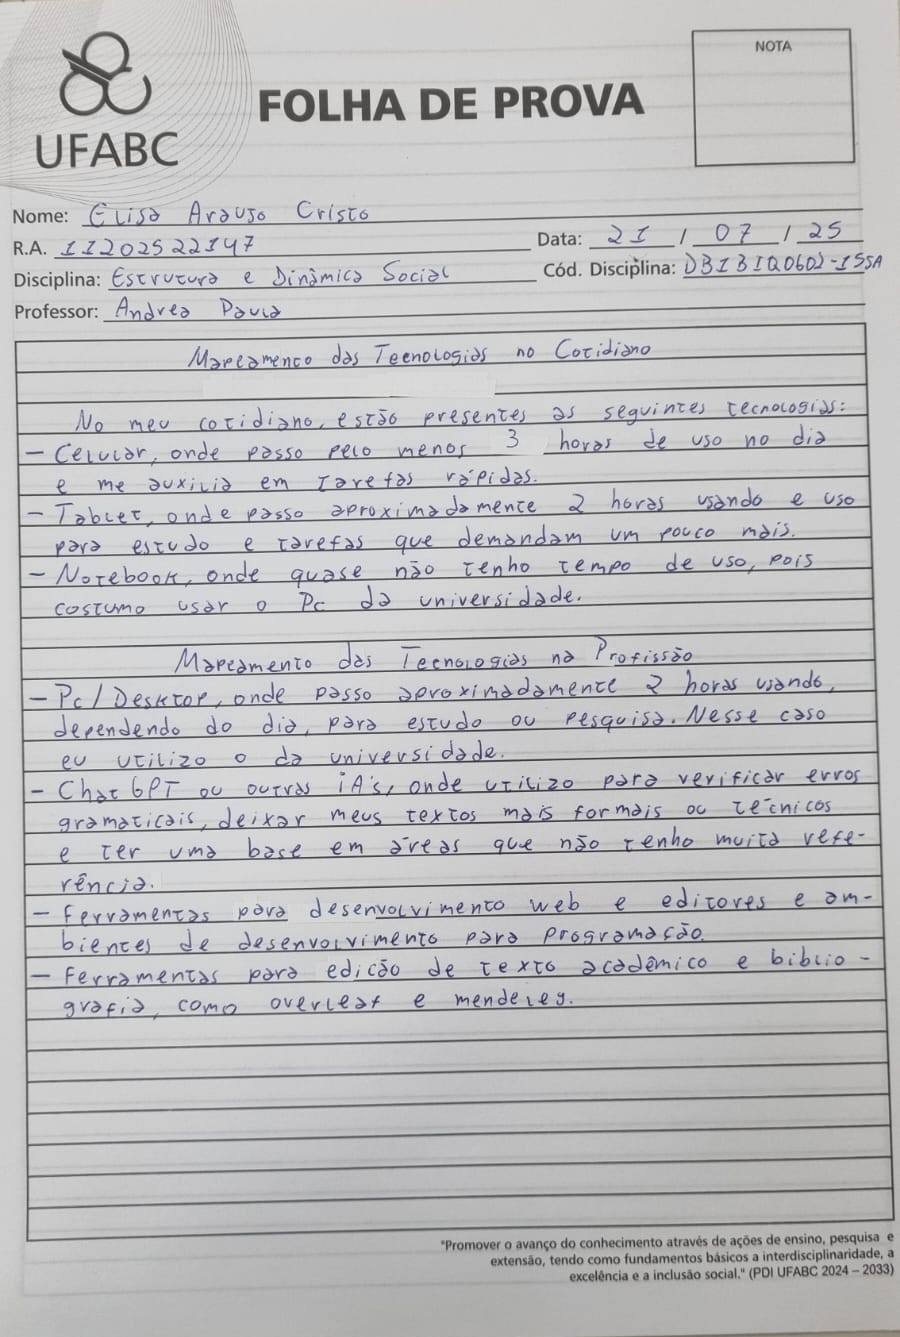 UFABC
FOLHA DE PROVA
NOTA
Nome: Elisa Araujo Cristo
R.A. 11202522147
Data: 21 / 07 / 25
Disciplina: Estrutura e Dinâmica Social
Cód. Disciplina: DB1BIQ0602-15SA
Professor: Andrea Paula
Mapeamento das Tecnologias no Cotidiano
No meu cotidiano, estão presentes as seguintes tecnologias:
- Celular, onde passo pelo menos 3 horas de uso no dia
e me auxilia em tarefas rápidas.
- Tablet, onde passo aproximadamente 2 horas usando e uso
para estudo e tarefas que demandam um pouco mais.
- Notebook, onde quase não tenho tempo de uso, pois
costumo usar o Pc da universidade.
Mapeamento das Tecnologias na Profissão
- Pc/Desktop, onde passo aproximadamente 2 horas usando,
dependendo do dia, para estudo ou pesquisa. Nesse caso
eu utilizo o da universidade.
- Chat GPT ou outras iA's, onde utilizo para verificar erros
gramaticais, deixar meus textos mais formais ou técnicos
e ter uma base em áreas que não tenho muita refe-
rência.
- Ferramentas para desenvolvimento web e editores e am-
bientes de desenvolvimento para programação.
- Ferramentas para edição de texto acadêmico e biblio-
grafia, como overleaf e mendeley.
"Promover o avanço do conhecimento através de ações de ensino, pesquisa e
extensão, tendo como fundamentos básicos a interdisciplinaridade, a
excelência e a inclusão social." (PDI UFABC 2024 – 2033)